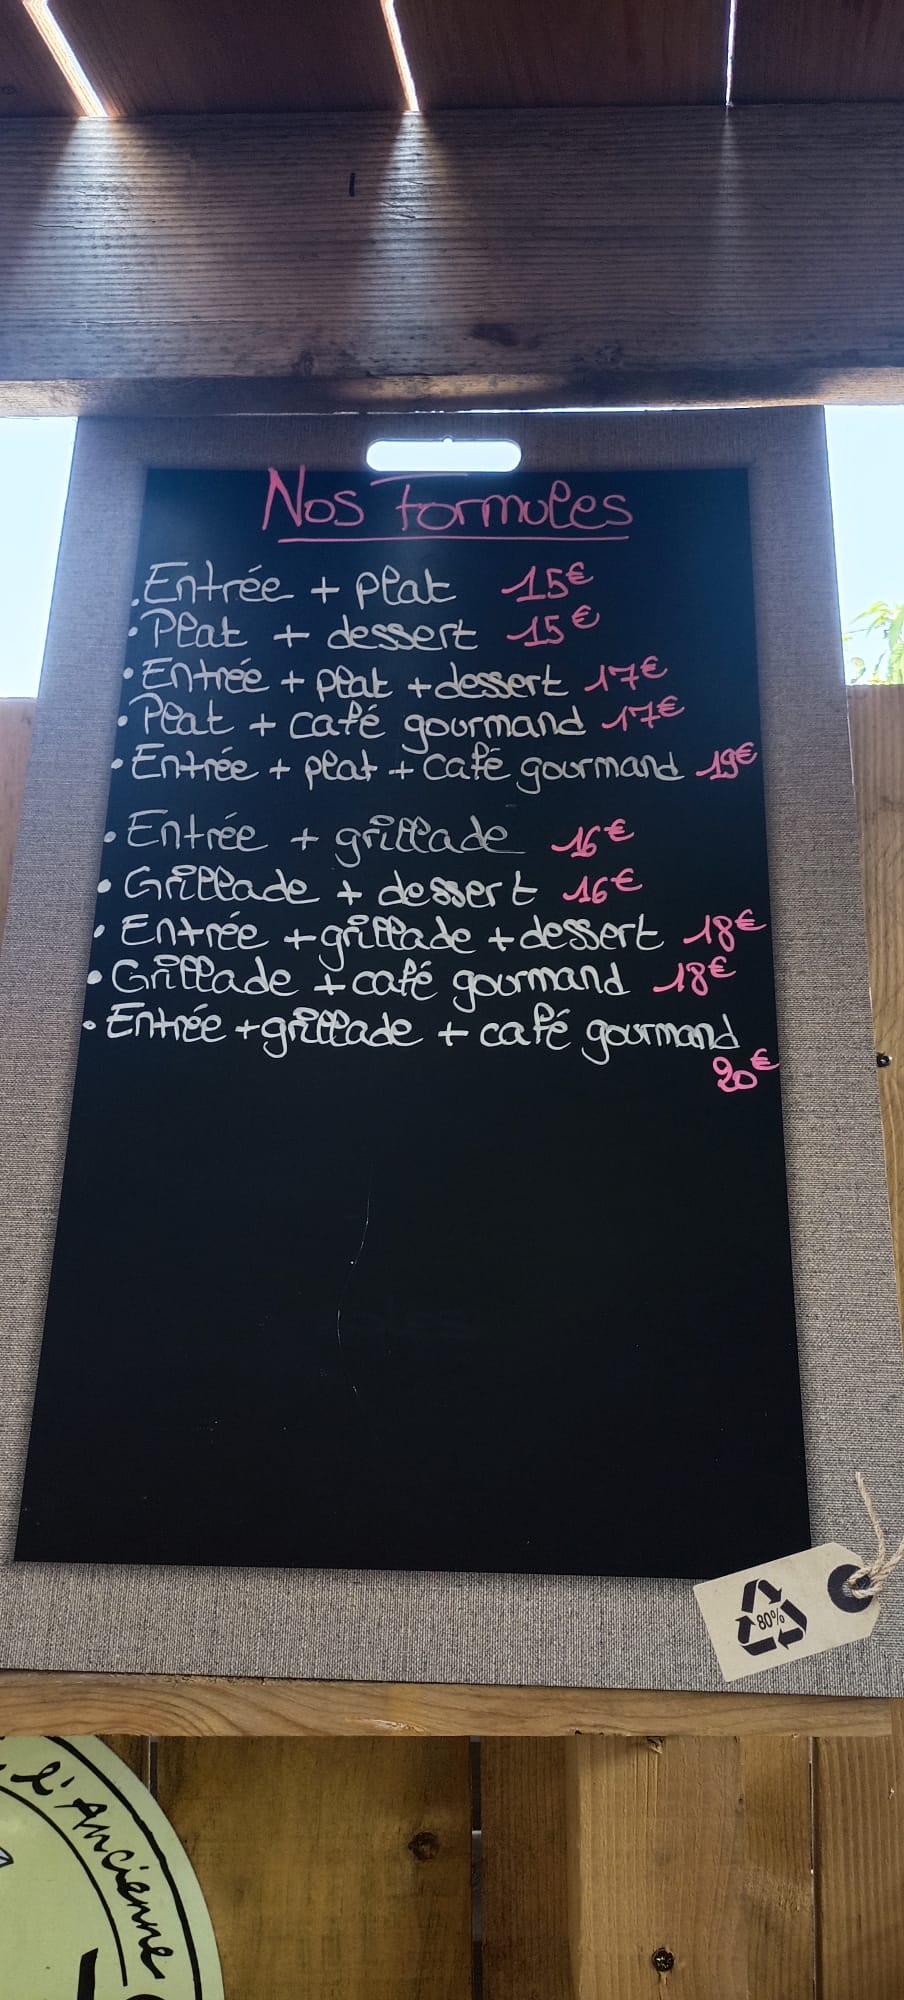 Nos formules
.Entrée + plat 15€
• Plat + dessert 15€
• Entrée + plat + dessert 17€
• Plat + café gourmand 17€
• Entrée + plat + café gourmand 19€
• Entrée + grillade 16€
• Grillade + dessert 16€
• Entrée + grillade + dessert 18€
• Grillade + café gourmand 18€
• Entrée + grillade + café gourmand
20€
80%
l'Ancienne